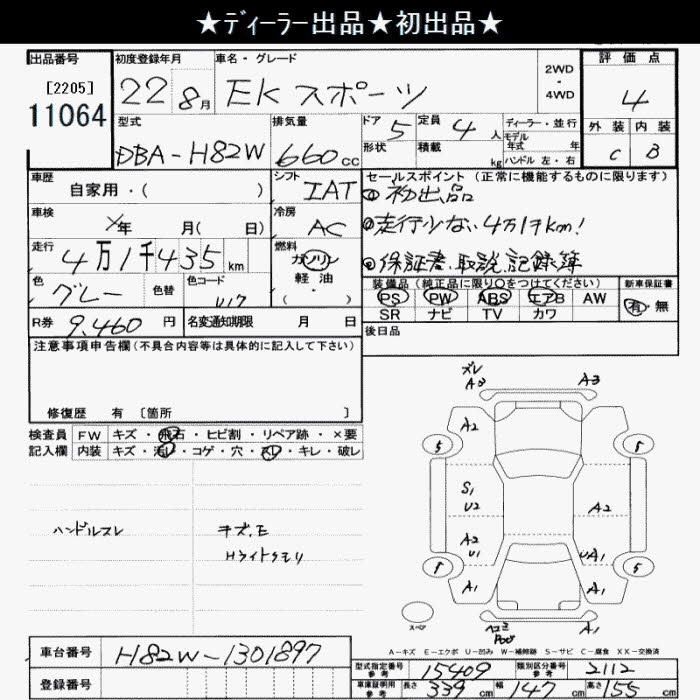 ★ディーラー出品★初出品★
出品番号 初度登録年月 車名・グレード 評価点
[2205] 22 8月 EKスポーツ 2WD・4WD 4
11064
型式 排気量 ドア 5 定員 4人 ディーラー・並行 外装 内装
DBA-H82W 660cc 形状 積載 kg モデル年式 年 ハンドル 左・右 C B
車歴 自家用・( ) シフト IAT セールスポイント (正常に機能するものに限ります)
初出品
車検 年 月( 日) 冷房 AC 走行少ない4万1千km!
走行 4万1千435km 燃料 ガソリン 軽油 ( ・ ) 保証書、取説、記録簿
色 グレー 色替 色コード U17 装備品 (純正品に限り○をつけてください) 新車保証書
PS PW ABS エアB AW 有・無
SR ナビ TV カワ
R券 9,460円 名変通知期限 月 日 後日品
注意事項申告欄 (不具合内容等は具体的に記入して下さい)
修復歴 有 〔箇所 〕
検査員 FW キズ・飛石・ヒビ割・リペア跡・×要
記入欄 内装 キズ・汚れ・コゲ・穴・スレ・キレ・破レ
ズレ
A3 A3
A2
5 5
S1
U2 A2
ハンドルスレ キズ、E
Hライトクモリ
A2
U1 UA1
5 5
A1 A1
スペア
A1
A・キズ E・エクボ U・凹み W・補修跡 S・サビ C・腐食 XX・交換済
車台番号 H82W-1301897
登録番号
型式指定番号 参考 15409 類別区分番号 参考 2112
車庫証明用 参考 長さ 339cm 幅 147cm 高さ 155cm